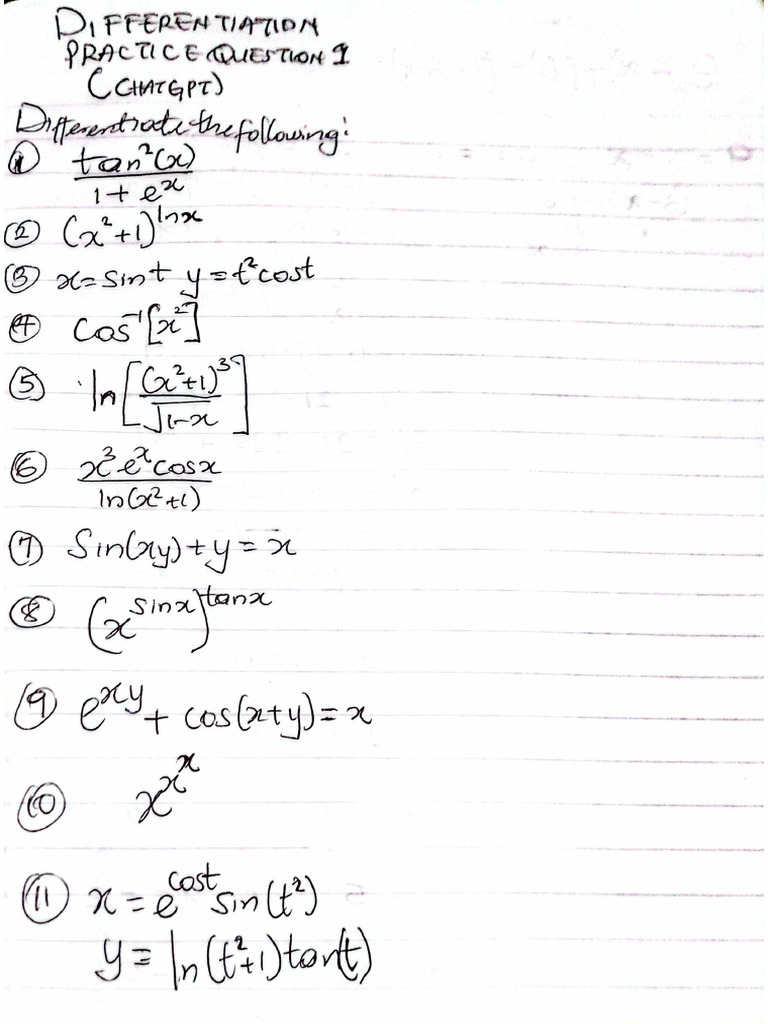 DIFFERENTIATION
PRACTICE QUESTION 1
(CHATGPT)
Differentiate the following:
① tan²(x) / 1 + eˣ
② (x²+1)^lnx
③ x=sint y=t²cost
④ cos⁻¹[x²]
⑤ ln[(x²+1)³ / √1-x]
⑥ x³eˣcosx / ln(x²+1)
⑦ Sin(xy)+y=x
⑧ (x^sinx)^tanx
⑨ e^xy + cos(x+y)=x
⑩ x^x^x
⑪ x = e^cost sin(t²)
y = ln(t²+1)tan(t)